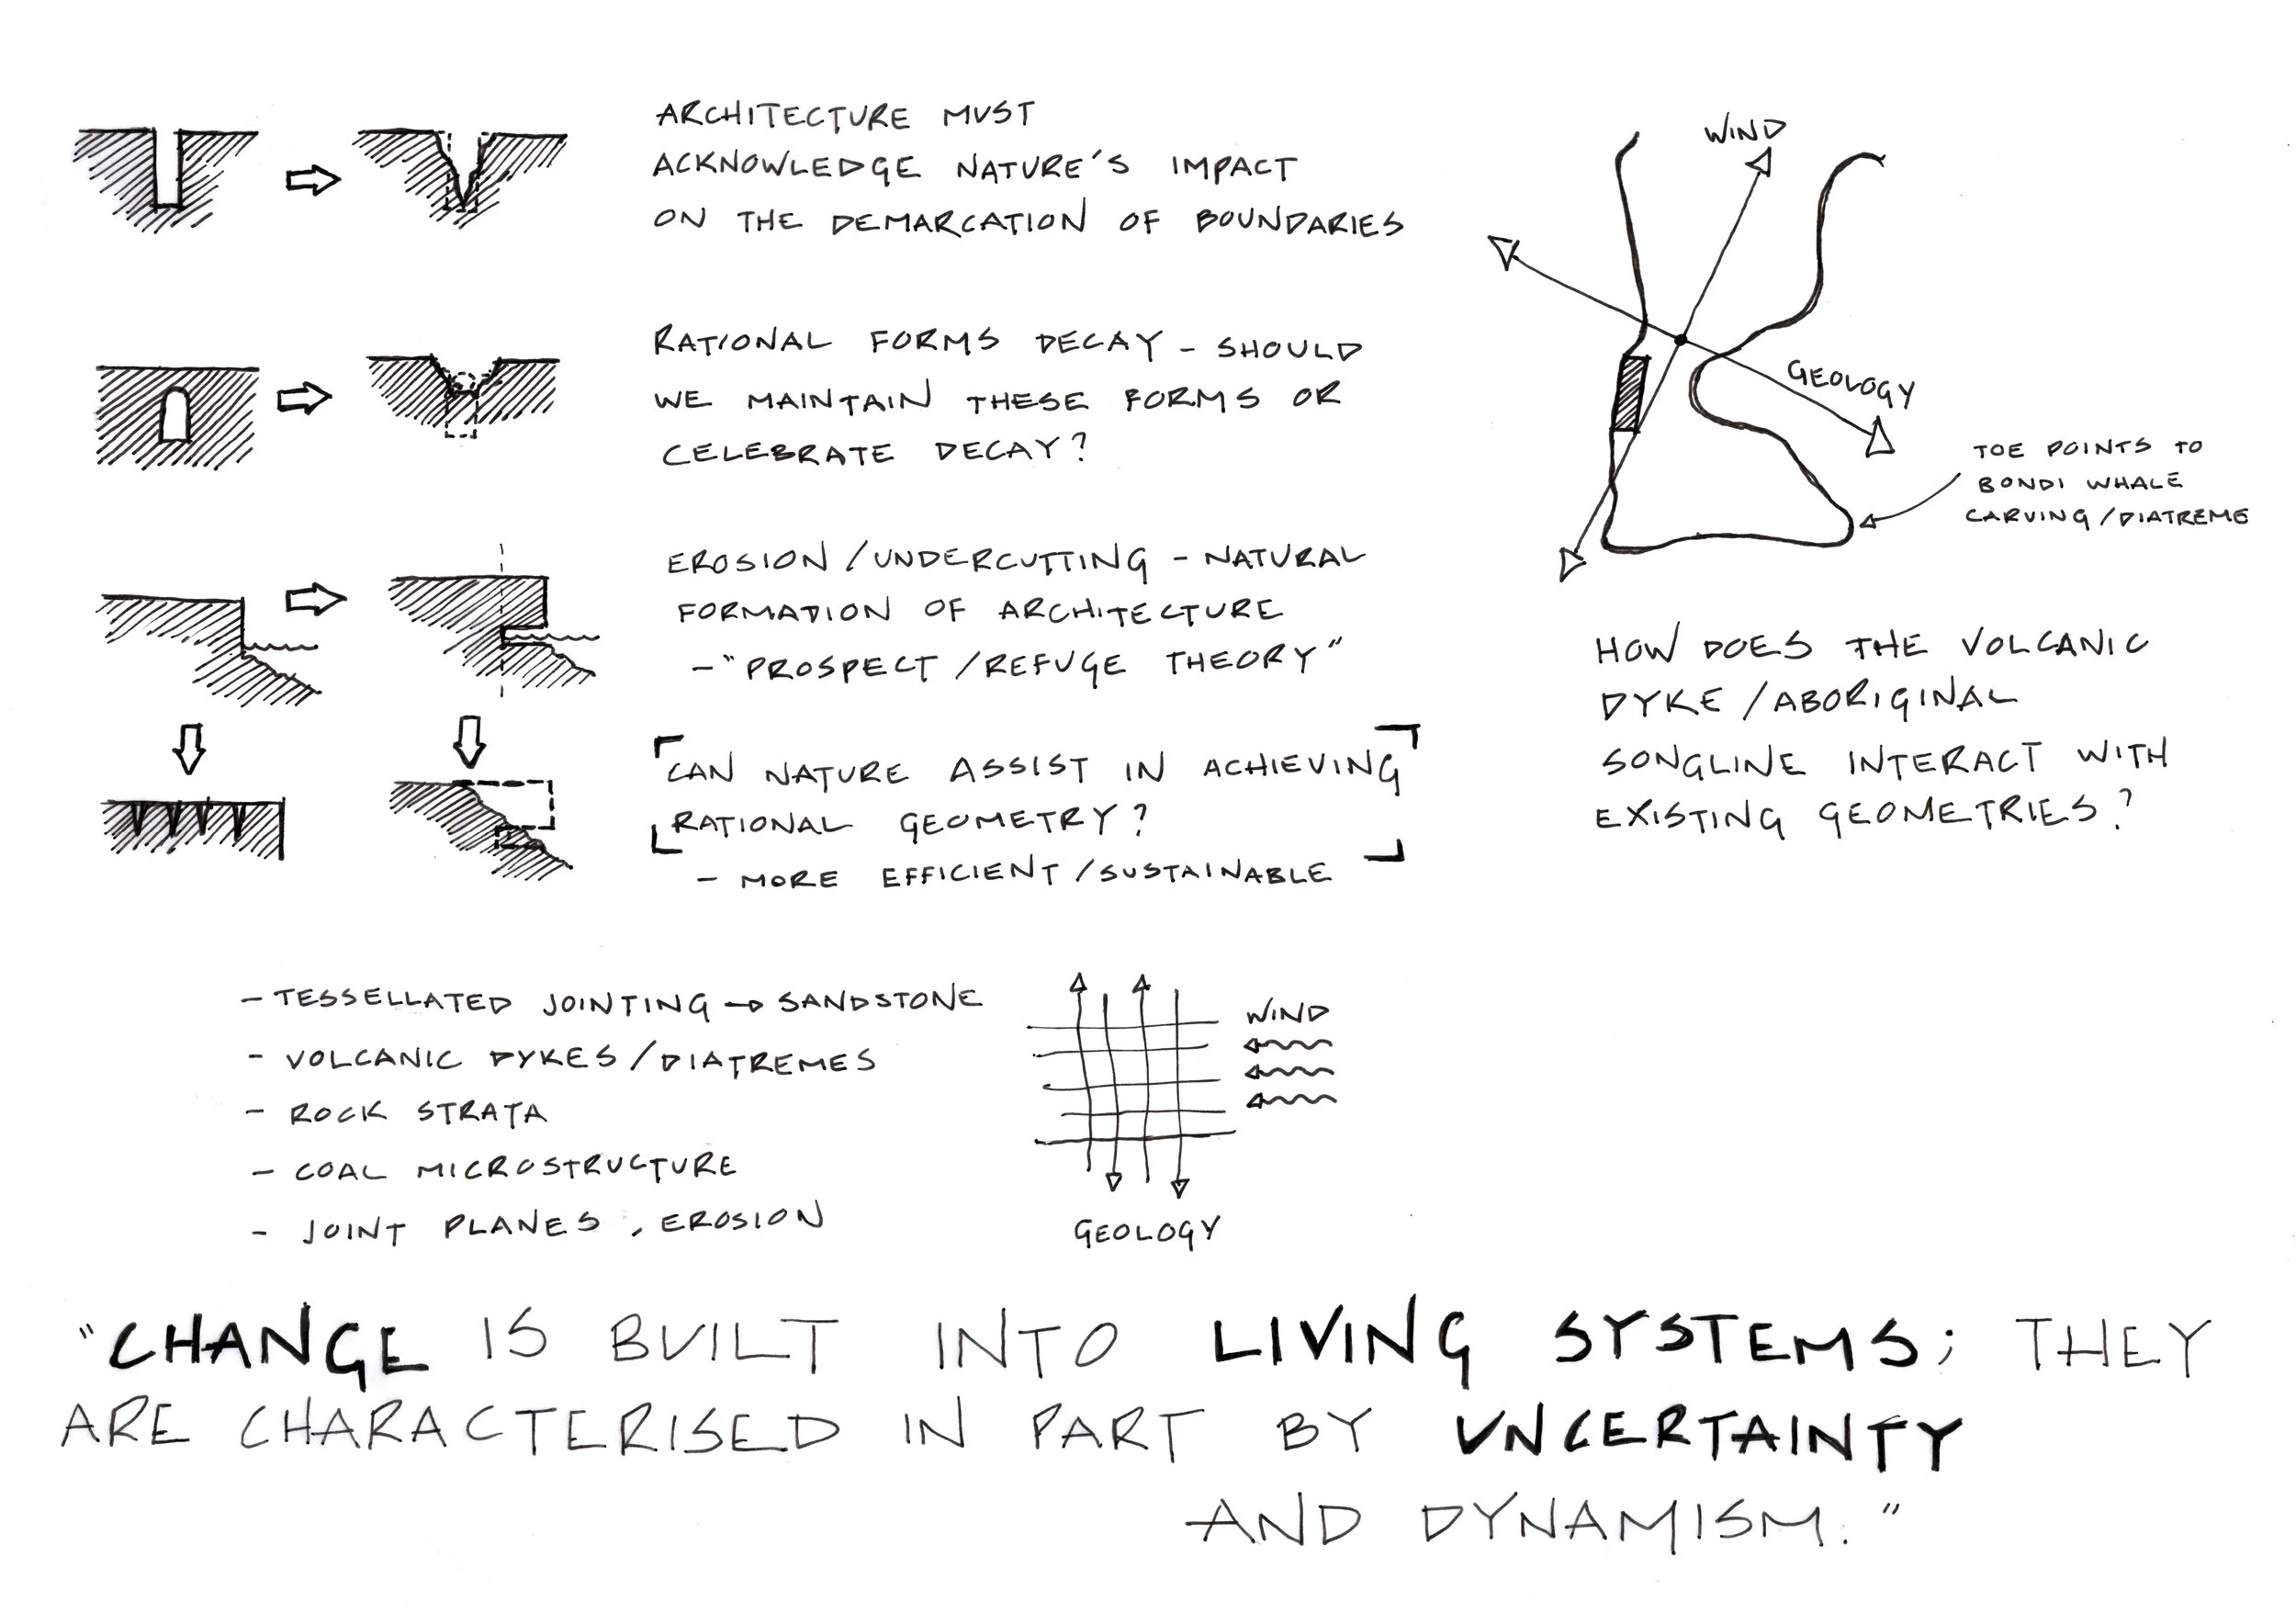 ARCHITECTURE MUST
ACKNOWLEDGE NATURE'S IMPACT
ON THE DEMARCATION OF BOUNDARIES
RATIONAL FORMS DECAY - SHOULD
WE MAINTAIN THESE FORMS OR
CELEBRATE DECAY?
EROSION / UNDERCUTTING - NATURAL
FORMATION OF ARCHITECTURE
- "PROSPECT / REFUGE THEORY"
CAN NATURE ASSIST IN ACHIEVING
RATIONAL GEOMETRY?
- MORE EFFICIENT / SUSTAINABLE
WIND
GEOLOGY
TOE POINTS TO
BONDI WHALE
CARVING / DIATREME
HOW DOES THE VOLCANIC
DYKE / ABORIGINAL
SONGLINE INTERACT WITH
EXISTING GEOMETRIES?
- TESSELLATED JOINTING → SANDSTONE
- VOLCANIC DYKES / DIATREMES
- ROCK STRATA
- COAL MICROSTRUCTURE
- JOINT PLANES, EROSION
WIND
GEOLOGY
"CHANGE IS BUILT INTO LIVING SYSTEMS; THEY
ARE CHARACTERISED IN PART BY UNCERTAINTY
AND DYNAMISM."